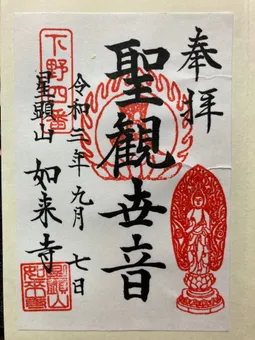 奉拝
聖観世音
令和三年九月七日
下野四番
星顕山
如来寺